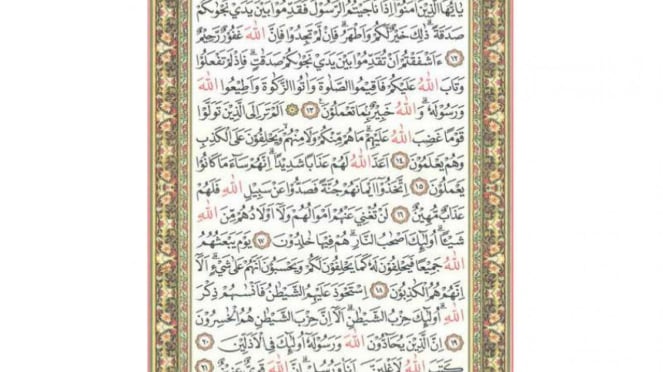 يَٓا اَيُّهَا الَّذ۪ينَ اٰمَنُٓوا اِذَا نَاجَيْتُمُ الرَّسُولَ فَقَدِّمُوا بَيْنَ يَدَيْ نَجْوٰيكُمْ
صَدَقَةًۜ ذٰلِكَ خَيْرٌ لَكُمْ وَاَطْهَرُۜ فَاِنْ لَمْ تَجِدُوا فَاِنَّ اللّٰهَ غَفُورٌ رَح۪يمٌ
﴿١٢﴾ ءَاَشْفَقْتُمْ اَنْ تُقَدِّمُوا بَيْنَ يَدَيْ نَجْوٰيكُمْ صَدَقَاتٍۜ فَاِذْ لَمْ تَفْعَلُوا
وَتَابَ اللّٰهُ عَلَيْكُمْ فَاَق۪يمُوا الصَّلٰوةَ وَاٰتُوا الزَّكٰوةَ وَاَط۪يعُوا اللّٰهَ
وَرَسُولَهُۜ وَاللّٰهُ خَب۪يرٌ بِمَا تَعْمَلُونَ ﴿١٣﴾ اَلَمْ تَرَ اِلَى الَّذ۪ينَ تَوَلَّوْا
قَوْمًا غَضِبَ اللّٰهُ عَلَيْهِمْۜ مَا هُمْ مِنْكُمْ وَلَا مِنْهُمْۙ وَيَحْلِفُونَ عَلَى الْكَذِبِ
وَهُمْ يَعْلَمُونَ ﴿١٤﴾ اَعَدَّ اللّٰهُ لَهُمْ عَذَابًا شَد۪يدًاۜ اِنَّهُمْ سَٓاءَ مَا كَانُوا
يَعْمَلُونَ ﴿١٥﴾ اِتَّخَذُٓوا اَيْمَانَهُمْ جُنَّةً فَصَدُّوا عَنْ سَب۪يلِ اللّٰهِ فَلَهُمْ
عَذَابٌ مُه۪ينٌ ﴿١٦﴾ لَنْ تُغْنِيَ عَنْهُمْ اَمْوَالُهُمْ وَلَٓا اَوْلَادُهُمْ مِنَ اللّٰهِ
شَيْـًٔاۜ اُو۬لٰٓئِكَ اَصْحَابُ النَّارِۜ هُمْ ف۪يهَا خَالِدُونَ ﴿١٧﴾ يَوْمَ يَبْعَثُهُمُ
اللّٰهُ جَم۪يعًا فَيَحْلِفُونَ لَهُ كَمَا يَحْلِفُونَ لَكُمْ وَيَحْسَبُونَ اَنَّهُمْ عَلٰى شَيْءٍۜ اَلَٓا
اِنَّهُمْ هُمُ الْكَاذِبُونَ ﴿١٨﴾ اِسْتَحْوَذَ عَلَيْهِمُ الشَّيْطَانُ فَاَنْسٰيهُمْ ذِكْرَ
اللّٰهِۜ اُو۬لٰٓئِكَ حِزْبُ الشَّيْطَانِۜ اَلَٓا اِنَّ حِزْبَ الشَّيْطَانِ هُمُ الْخَاسِرُونَ
﴿١٩﴾ اِنَّ الَّذ۪ينَ يُحَٓادُّونَ اللّٰهَ وَرَسُولَهُٓ اُو۬لٰٓئِكَ فِي الْاَذَلّ۪ينَ ﴿٢٠﴾
كَتَبَ اللّٰهُ لَاَغْلِبَنَّ اَنَا۬ وَرُسُل۪يۜ اِنَّ اللّٰهَ قَوِيٌّ عَز۪يزٌ ﴿٢١﴾